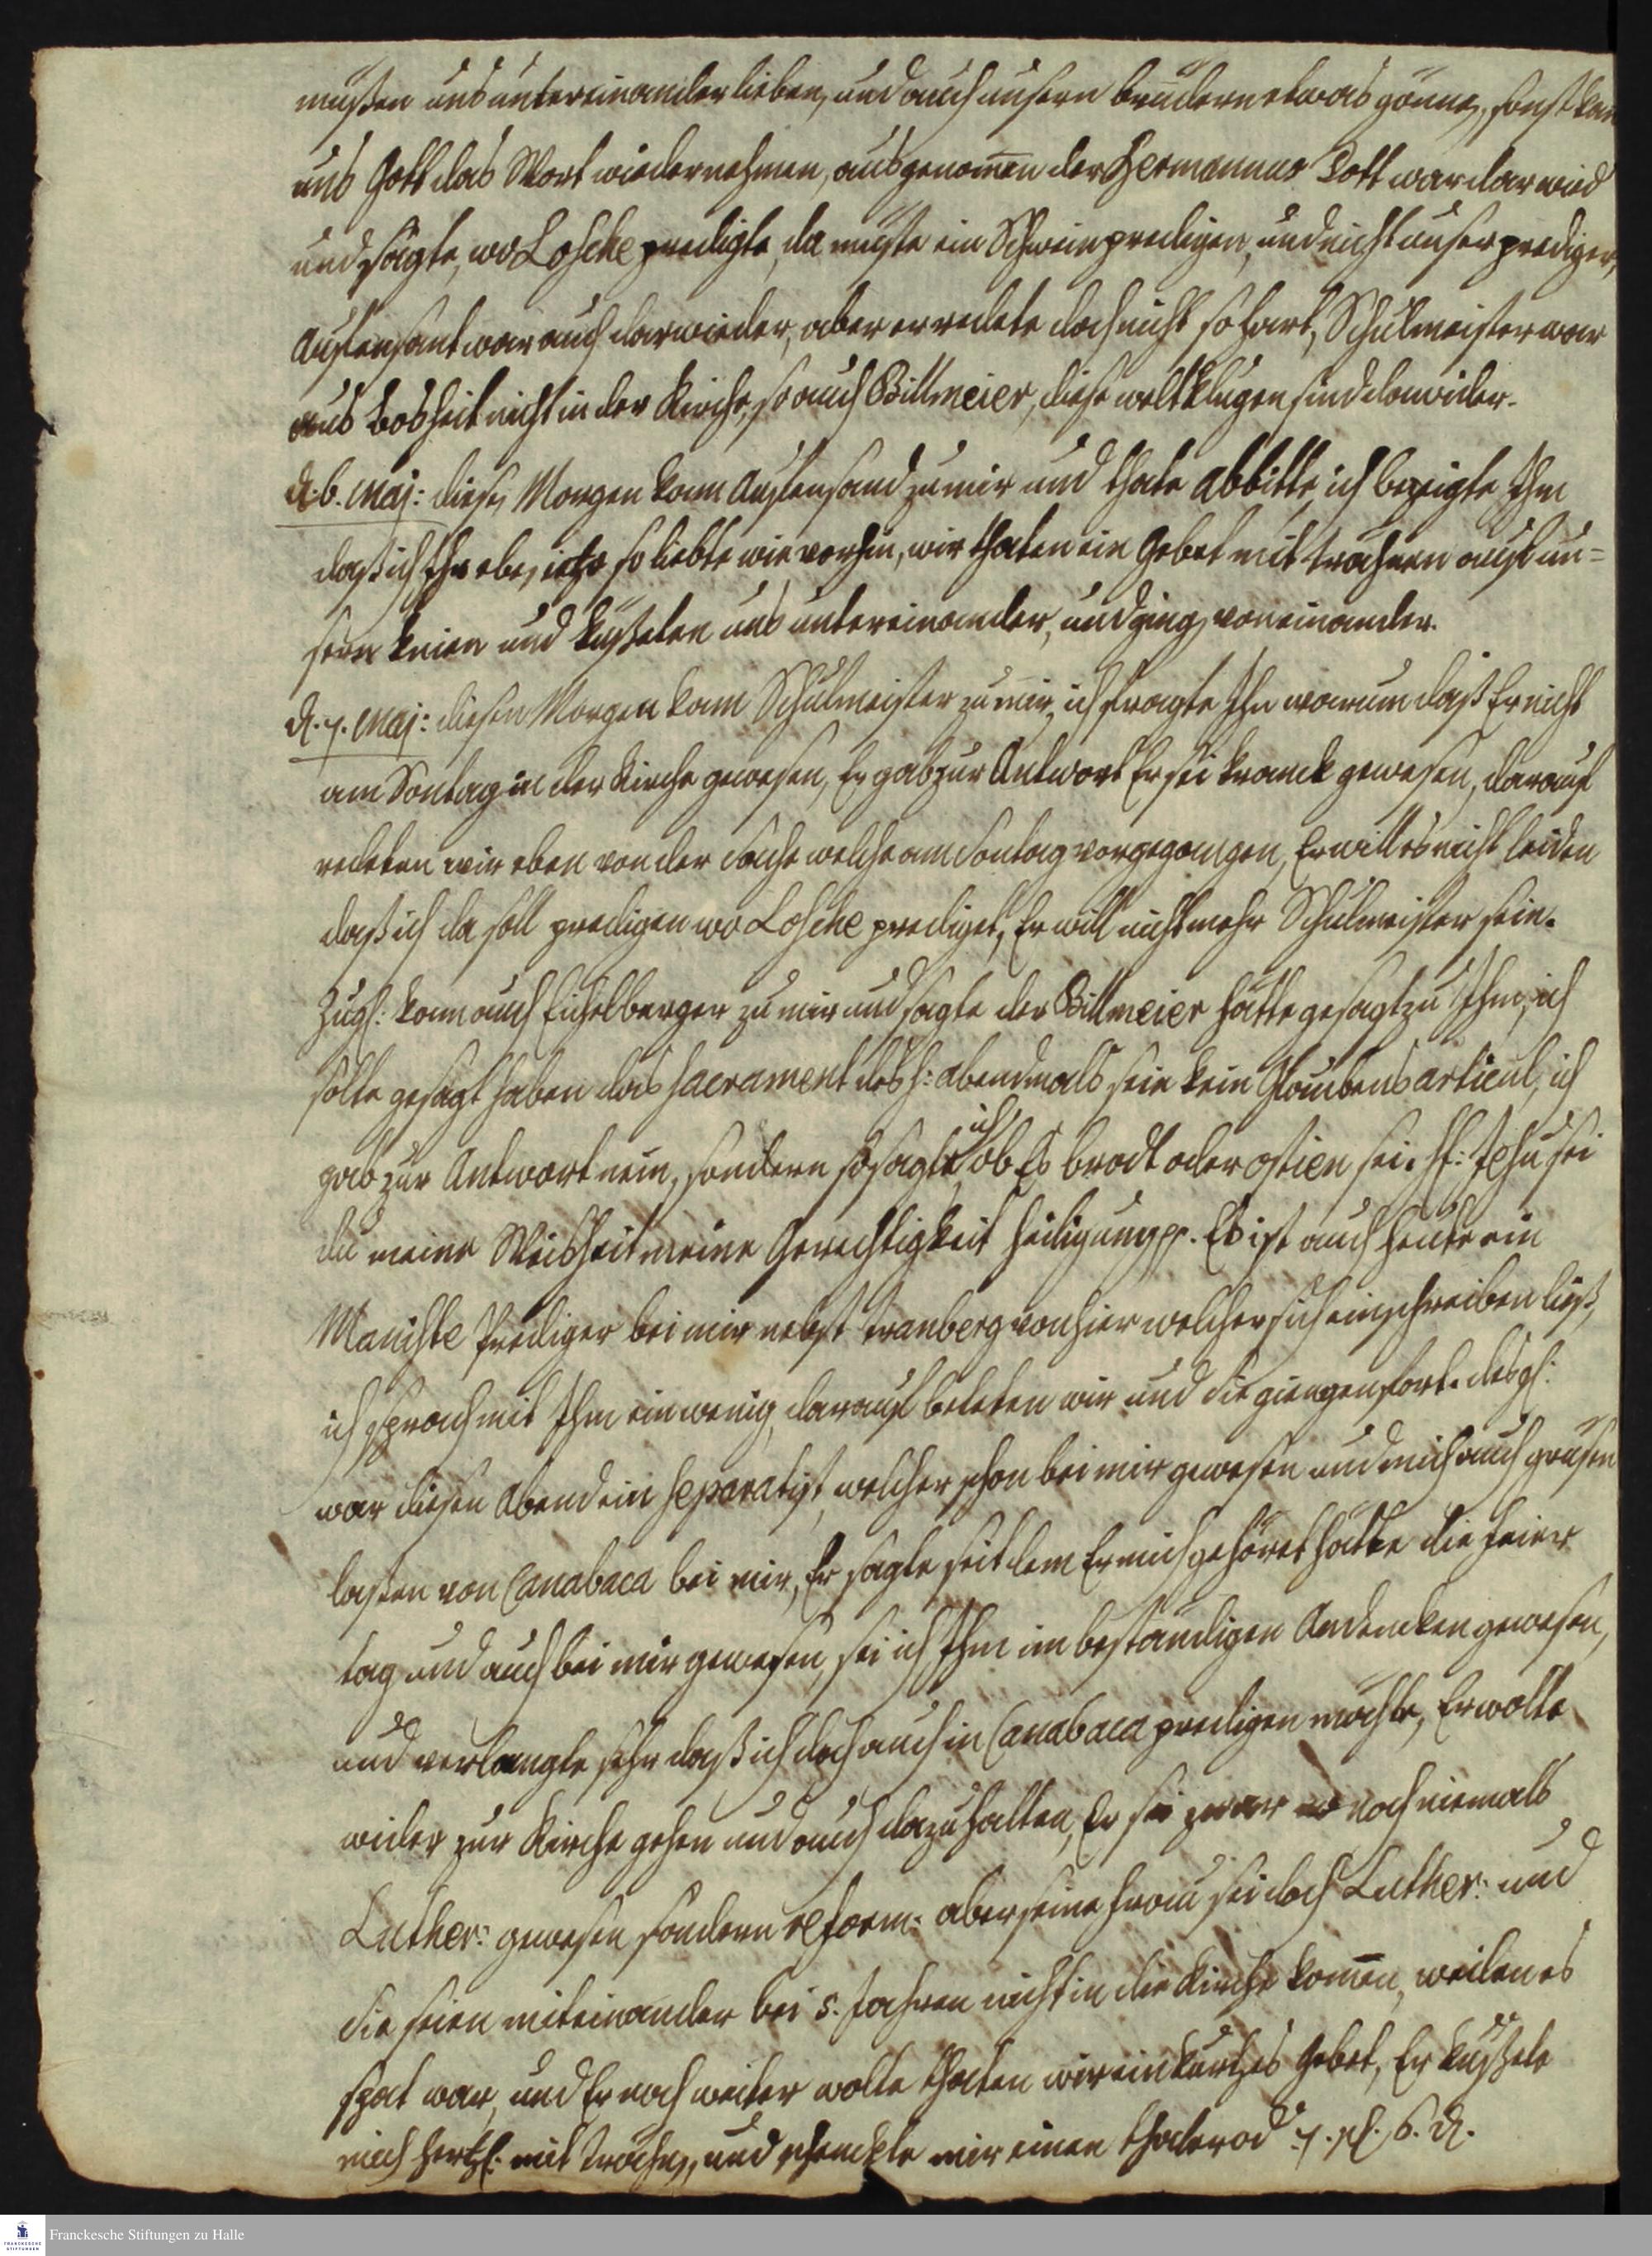 müßen uns untereinander lieben, und auch unsern brüdern etwas gönnen, sonst kan
uns Gott das Wort wiedernehmen, ausgenom̅en der Hermannus Lott war darwied
und sagte, wo Loscke predigte, da müste ein Schwein predigen, und nicht unser prediger,
Austensant war auch darwieder, aber er redete doch nicht so hart, Schulmeister war
aus bosheit nicht in der Kirche, so auch Billmeier, diese weltklugen sind dawider.
d. 6. Maj: diesen Morgen kam Austensand zu mir und thate abbitte, ich bezeigte Ihm
daß ich Ihn eben jetzo so liebte wie vorhin, wir thaten ein Gebet mit trähnen auf un=
sern knien und küßeten uns untereinander, und ging voneinander.
d. 7. Maj: diesen Morgen kam Schulmeister zu mir, ich fragte Ihn warum daß Er nicht
am Sontag in der Kirche gewesen, Er gab zur Antwort Er sei kranck gewesen, darauf
redeten wir eben von der sache welche am Sontag vorgegangen, Er will es nicht leiden
daß ich da soll predigen wo Loscke prediget, Er will nicht mehr Schulmeister sein.
Zugl: kam auch Eichelberger zu mir und sagte der Billmeier hätte gesagt zu Ihm, ich
solte gesagt haben das Sacrament des h: abendmals sein kein Glaubens articul, ich
gab zur Antwort nein, sondern so sagte ich ob Es brodt oder ostien sei. Hf: Jesu sei
du meine Weisheit meine Gerechtigkeit heiligung pp. Es ist auch heute ein
Maniste Prediger bei mir nebst tranberg von hier welcher sich einschreiben ließ,
ich sprach mit Ihm ein wenig, darauf beteten wir und die giengen fort. desgl:
war diesen Abend ein Separatist, welcher schon bei mir gewesen und mich auch grüsen
laßen von Canabaca bei mir, Er sagte seit dem Er mich gehöret hätte die feier
tag und auch bei mir gewesen, sei ich Ihm im beständigen Andencken gewesen,
und verlangte sehr daß ich doch auch in Canabaca predigen möchte, Er wolte
wider zur Kirche gehen und auch dazu halten, Er sei zwar noch niemals
Luther: gewesen sondern reform: aber seine frau sei doch Luther: und
die seien miteinander bei 5. Jahren nicht in die Kirche kom̅en, weilen es
spat war, und Er noch weiter wolte thaten wir ein kurtzes Gebet, Er küßete
mich hertzl. mit trähnen, und schenckte mir einen thaler od 7. ß. 6. d.
Franckesche Stiftungen zu Halle